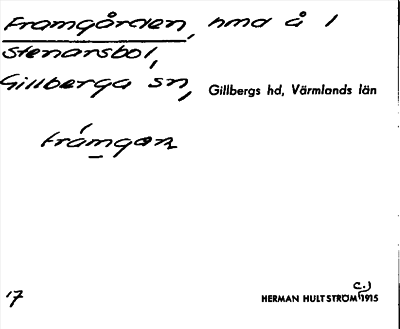 Framgården, hmd å 1
Stenarsbol,
Gillberga sn, Gillbergs hd, Värmlands län
frámgan
17
HERMAN HULTSTRÖM (c.) 1915